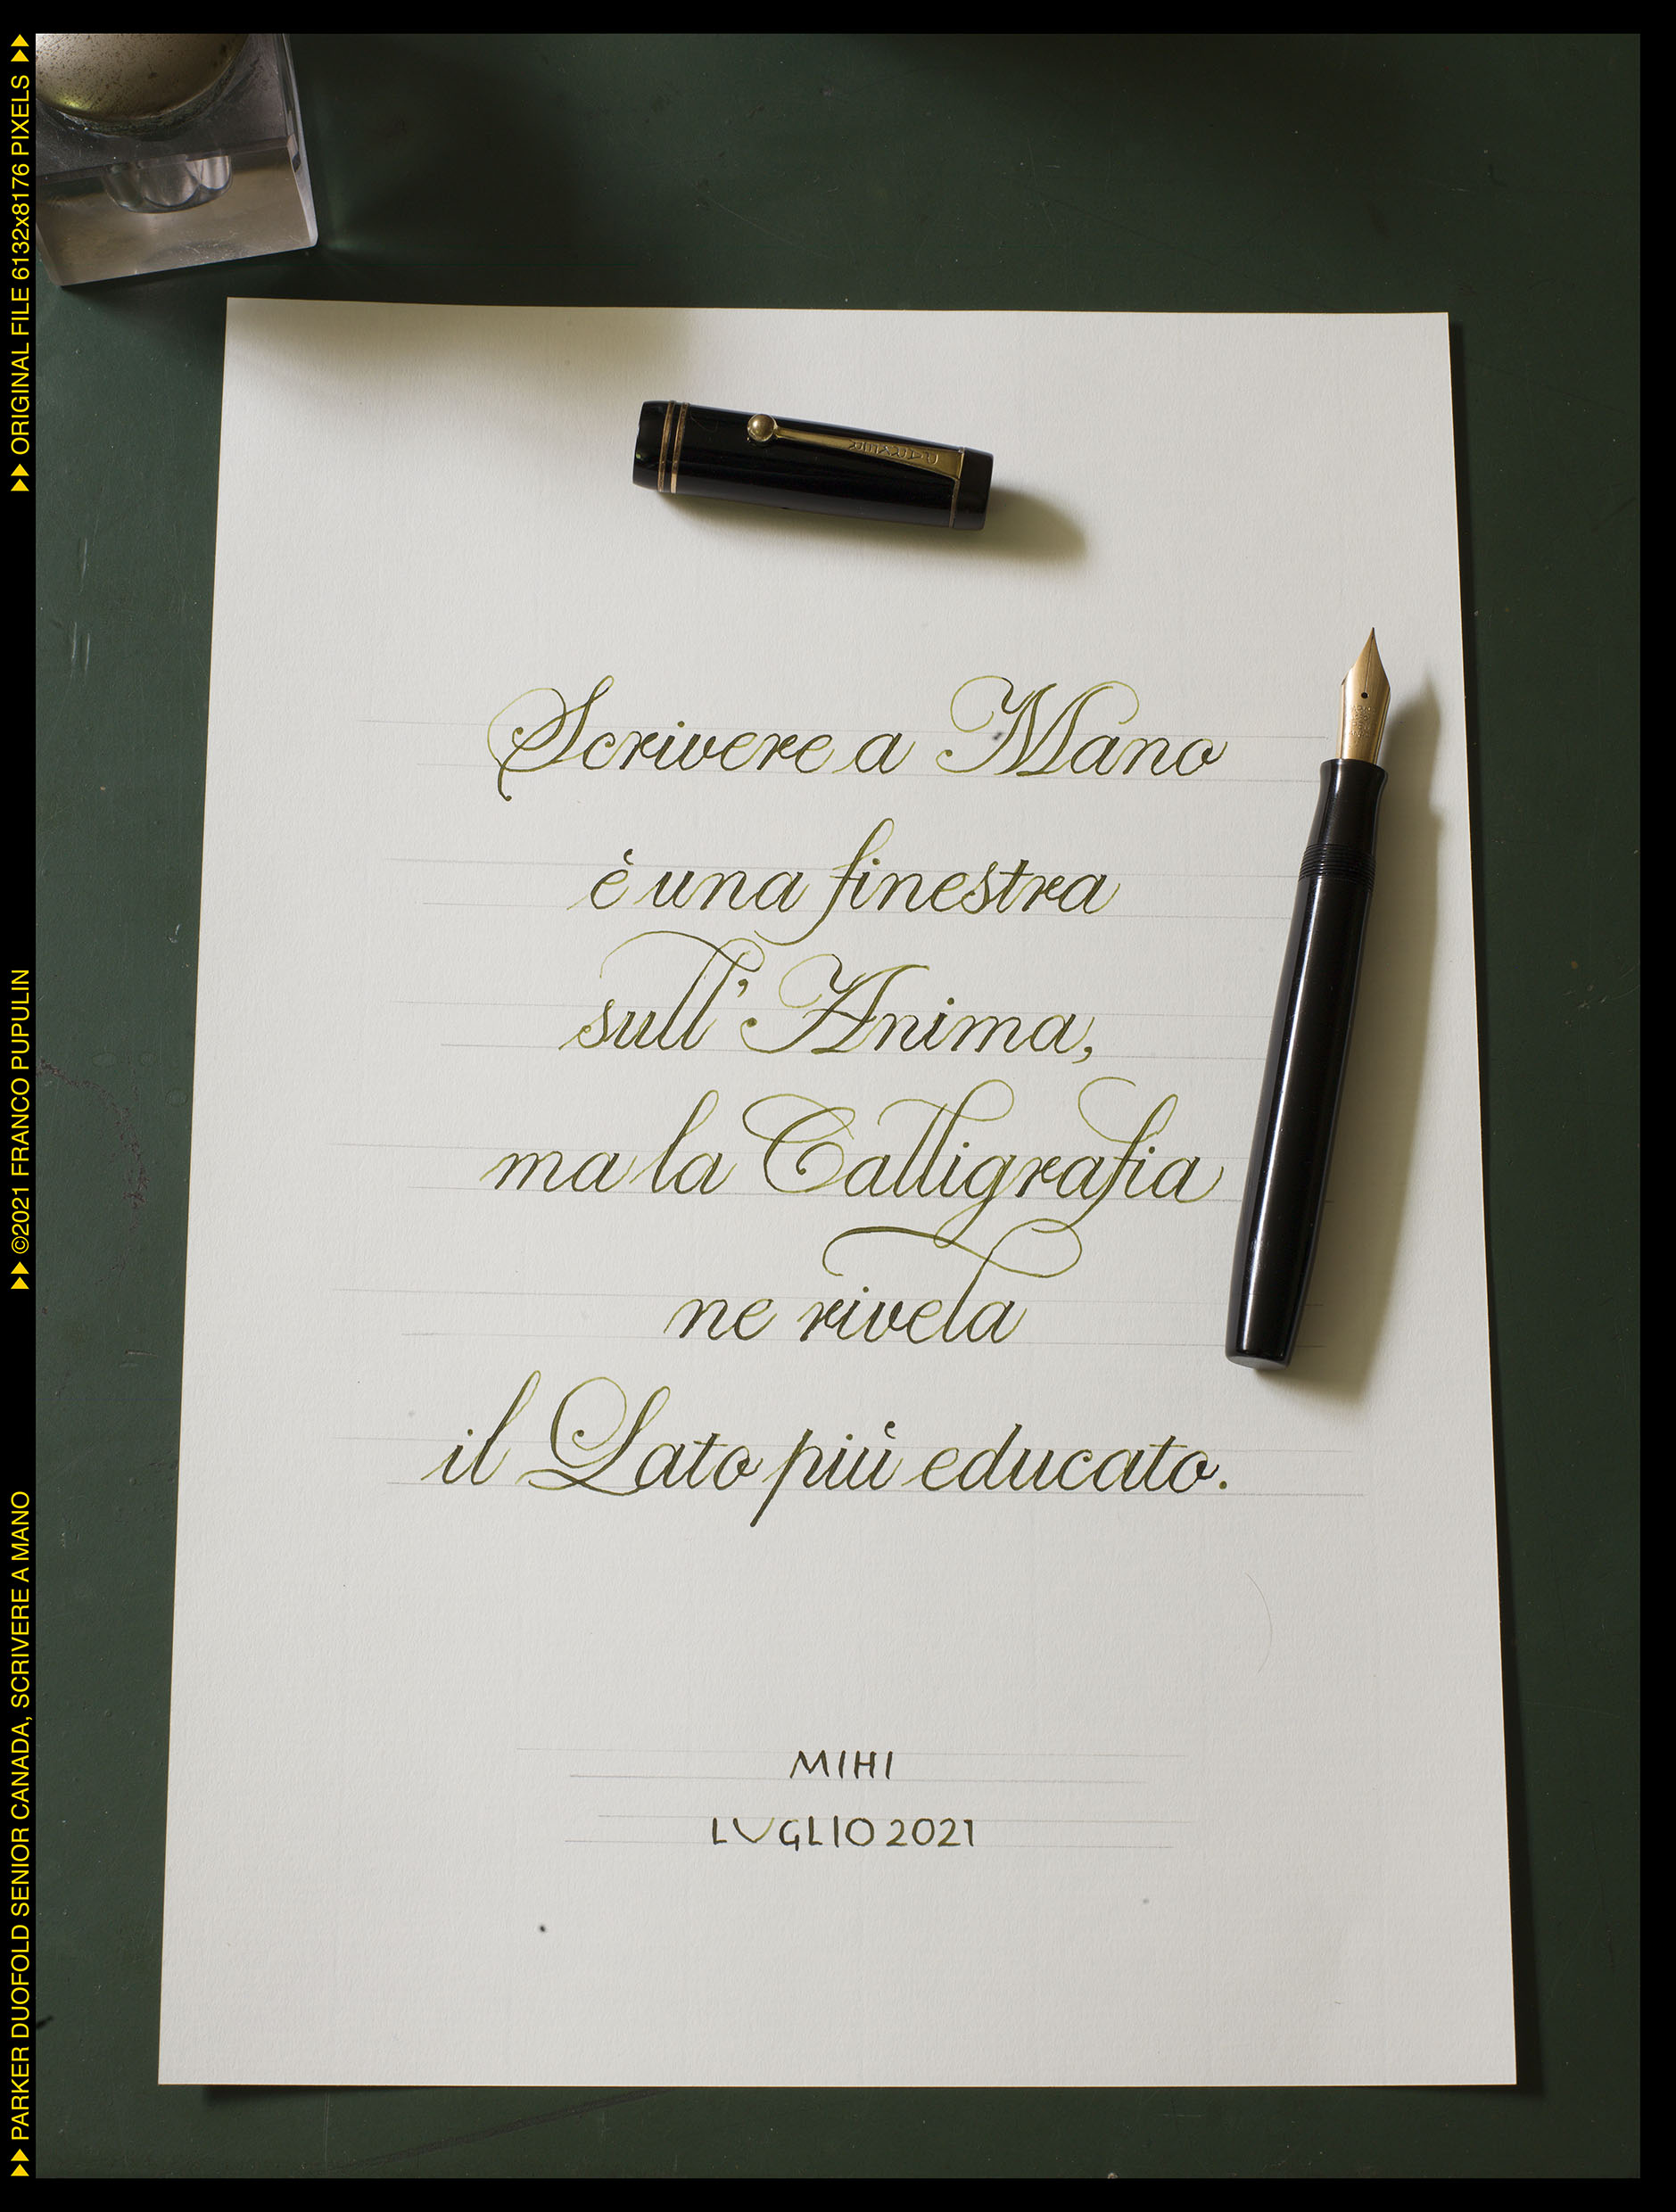 PARKER
Scrivere a Mano
è una finestra
sull' Anima,
ma la Calligrafia
ne rivela
il Lato più educato.
MIHI
LUGLIO 2021
PARKER DUOFOLD SENIOR CANADA, SCRIVERE A MANO
©2021 FRANCO PUPULIN
ORIGINAL FILE 6132x8176 PIXELS